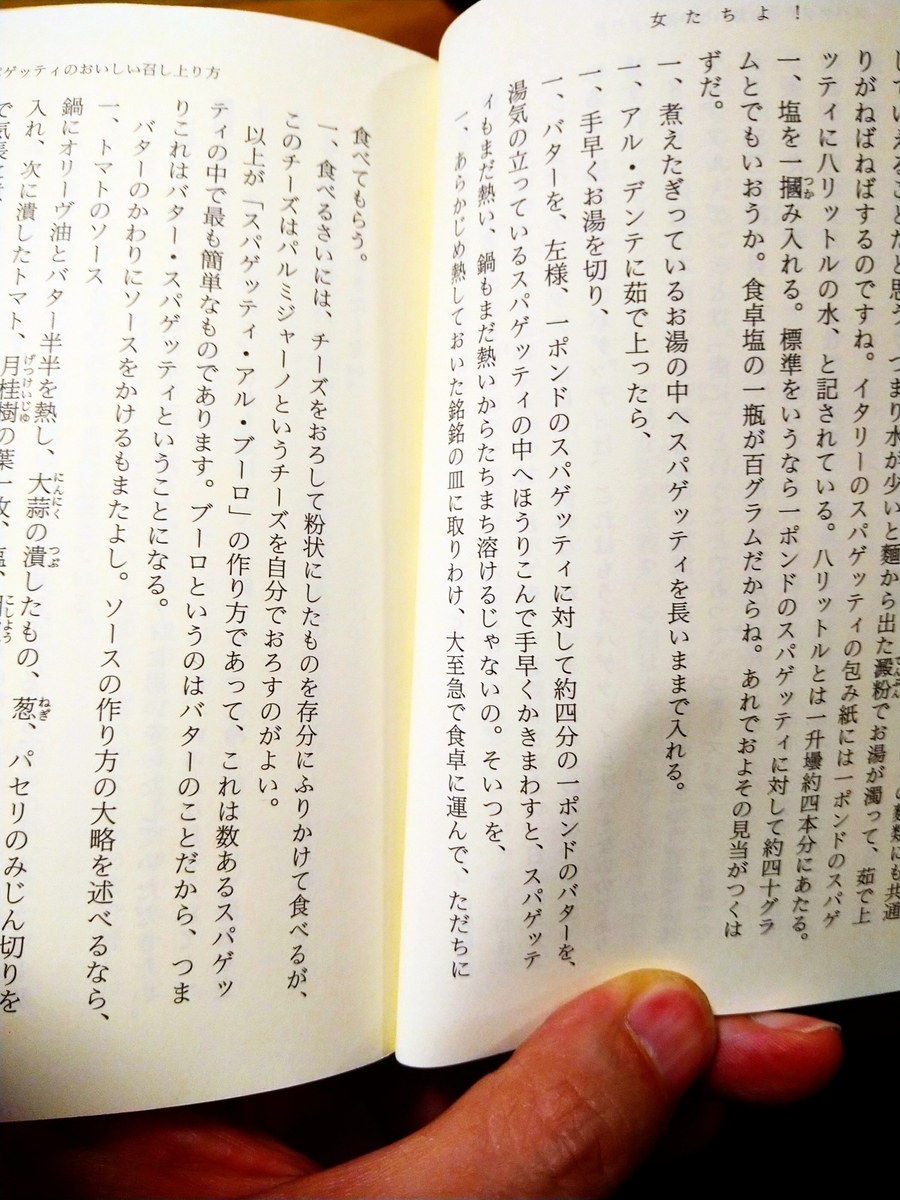 女たちよ!
していえることだと思う。つまり水が少いと麺から出た澱粉でお湯が濁って、茹で上
りがねばねばするのですね。イタリーのスパゲッティの包み紙には一ポンドのスパゲ
ッティに八リットルの水、と記されている。八リットルとは一升壜約四本分にあたる。
一、塩を一摑み入れる。標準をいうなら一ポンドのスパゲッティに対して約四十グラ
ムとでもいおうか。食卓塩の一瓶が百グラムだからね。あれでおよその見当がつくは
ずだ。
一、煮えたぎっているお湯の中へスパゲッティを長いままで入れる。
一、アル・デンテに茹で上ったら、
一、手早くお湯を切り、
一、バターを、左様、一ポンドのスパゲッティに対して約四分の一ポンドのバターを、
湯気の立っているスパゲッティの中へほうりこんで手早くかきまわすと、スパゲッテ
ィもまだ熱い、鍋もまだ熱いからたちまち溶けるじゃないの。そいつを、
一、あらかじめ熱しておいた銘銘の皿に取りわけ、大至急で食卓に運んで、ただちに
ゲッティのおいしい召し上り方
食べてもらう。
一、食べるさいには、チーズをおろして粉状にしたものを存分にふりかけて食べるが、
このチーズはパルミジャーノというチーズを自分でおろすのがよい。
以上が「スパゲッティ・アル・ブーロ」の作り方であって、これは数あるスパゲッ
ティの中で最も簡単なものであります。ブーロというのはバターのことだから、つま
りこれはバター・スパゲッティということになる。
バターのかわりにソースをかけるもまたよし。ソースの作り方の大略を述べるなら、
一、トマトのソース
鍋にオリーヴ油とバター半半を熱し、大蒜の潰したもの、葱、パセリのみじん切りを
入れ、次に潰したトマト、月桂樹の葉一枚、塩、